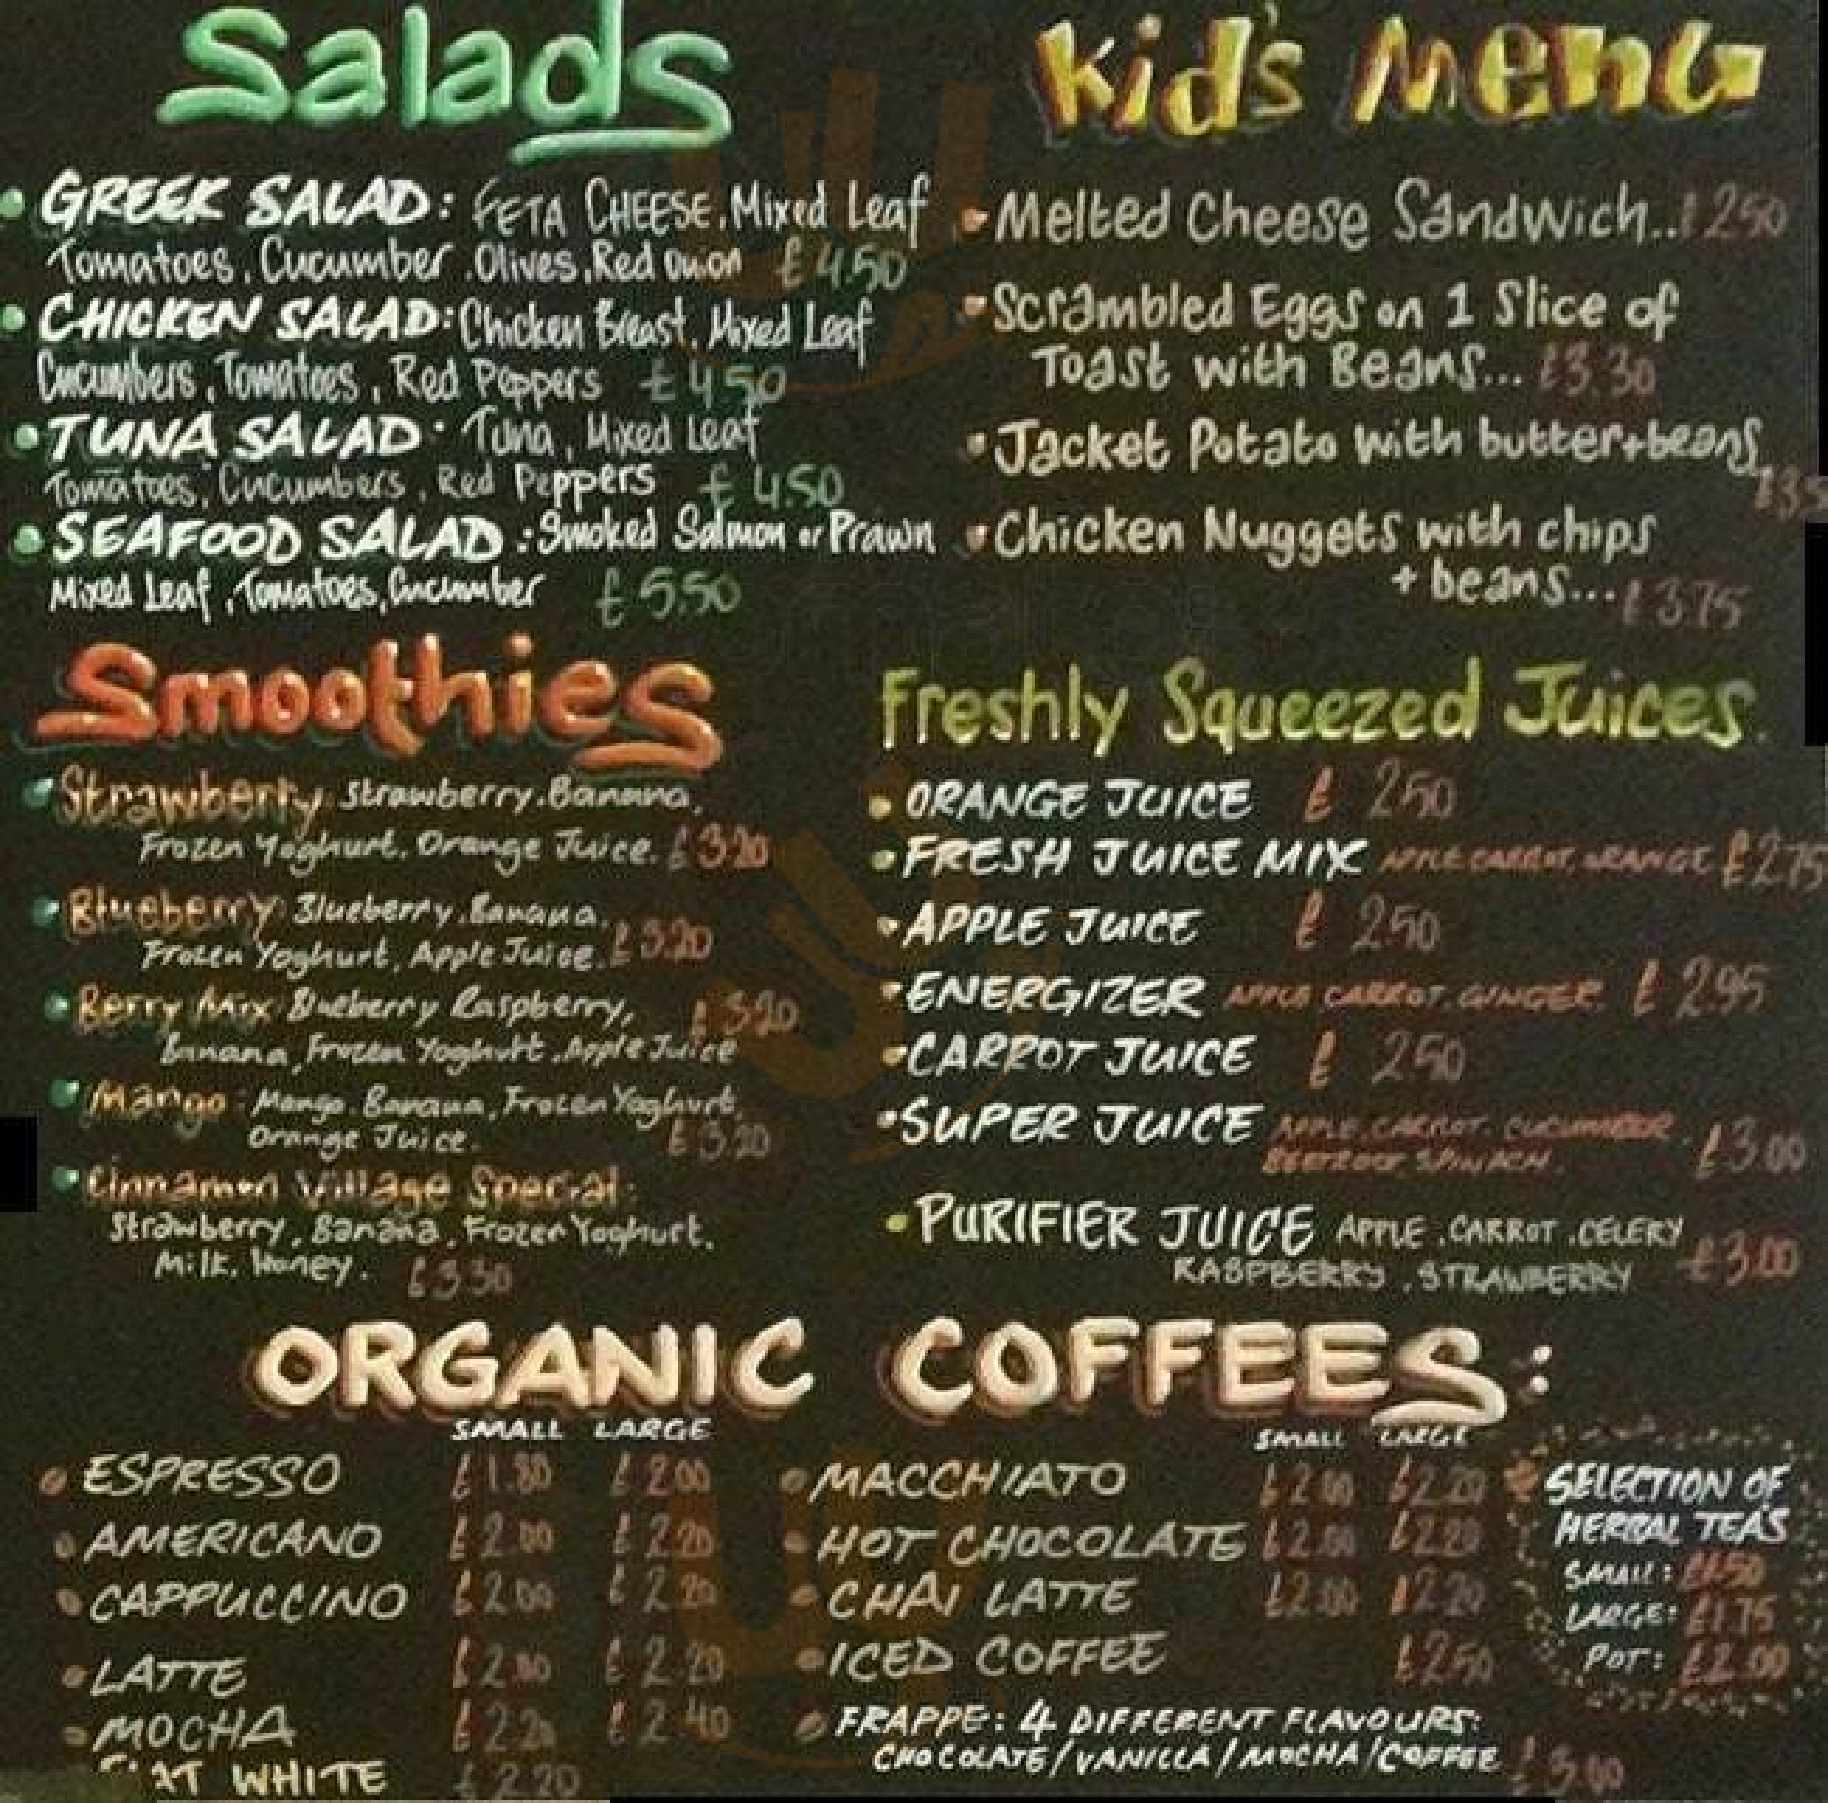 Salads
• GREEK SALAD: FETA CHEESE, Mixed Leaf
Tomatoes, Cucumber, Olives, Red onion £4.50
• CHICKEN SALAD: Chicken Breast, Mixed Leaf
Cucumbers, Tomatoes, Red Peppers £4.50
• TUNA SALAD: Tuna, Mixed Leaf
Tomatoes, Cucumbers, Red Peppers £4.50
• SEAFOOD SALAD: Smoked Salmon or Prawn
Mixed Leaf, Tomatoes, Cucumber £5.50
Kid's Menu
• Melted Cheese Sandwich.. £2.50
• Scrambled Eggs on 1 Slice of
Toast with Beans... £3.30
• Jacket Potato with butter + beans
• Chicken Nuggets with chips
+ beans... £3.75
Smoothies
• Strawberry: Strawberry, Banana,
Frozen Yoghurt, Orange Juice. £3.20
• Blueberry: Blueberry, Banana,
Frozen Yoghurt, Apple Juice. £3.20
• Berry Mix: Blueberry Raspberry, £3.20
Banana, Frozen Yoghurt, Apple Juice
• Mango: Mango, Banana, Frozen Yoghurt,
Orange Juice. £3.20
• Cinnamon Village Special:
Strawberry, Banana, Frozen Yoghurt,
Milk, Honey. £3.30
Freshly Squeezed Juices
• ORANGE JUICE £2.50
• FRESH JUICE MIX APPLE, CARROT, ORANGE £2.75
• APPLE JUICE £2.50
• ENERGIZER APPLE CARROT, GINGER £2.95
• CARROT JUICE £2.50
• SUPER JUICE APPLE, CARROT, CUCUMBER, £3.00
BEETROOT, SPINACH
• PURIFIER JUICE APPLE, CARROT, CELERY
RASPBERRY, STRAWBERRY £3.00
ORGANIC COFFEES:
SMALL LARGE
• ESPRESSO £1.80 £2.00
• AMERICANO £2.00 £2.20
• CAPPUCCINO £2.00 £2.20
• LATTE £2.00 £2.20
• MOCHA £2.20 £2.40
FLAT WHITE £2.20
SMALL LARGE
• MACCHIATO £2.00 £2.20
• HOT CHOCOLATE £2.00 £2.20
• CHAI LATTE £2.00 £2.20
• ICED COFFEE £2.50
• FRAPPE: 4 DIFFERENT FLAVOURS:
CHOCOLATE/VANILLA/MOCHA/COFFEE £3.00
SELECTION OF
HERBAL TEAS
SMALL: £1.50
LARGE: £1.75
POT: £2.00